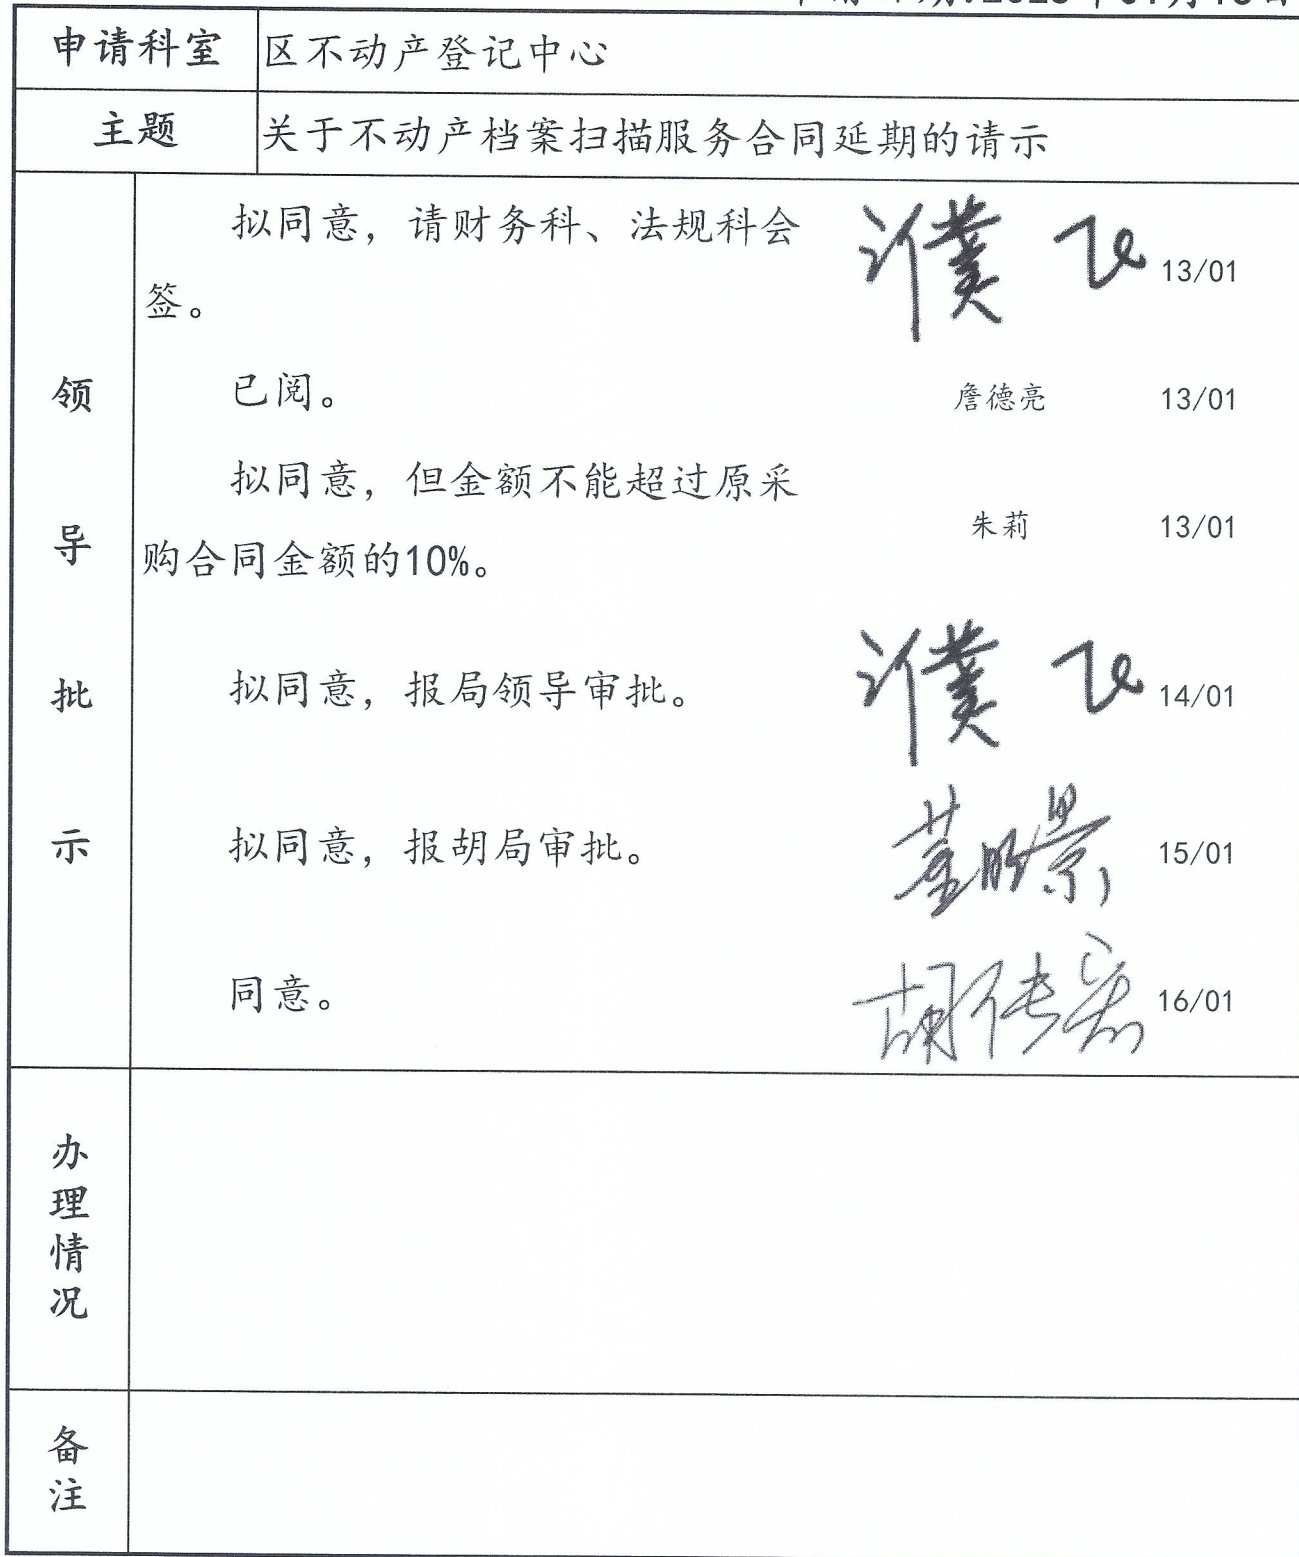 申请科室 区不动产登记中心
主题 关于不动产档案扫描服务合同延期的请示
领导批示
拟同意，请财务科、法规科会
签。
濮飞 13/01
已阅。 詹德亮 13/01
拟同意，但金额不能超过原采
购合同金额的10%。
朱莉 13/01
拟同意，报局领导审批。 濮飞 14/01
拟同意，报胡局审批。 15/01
同意。 胡传宏 16/01
办理情况
备注